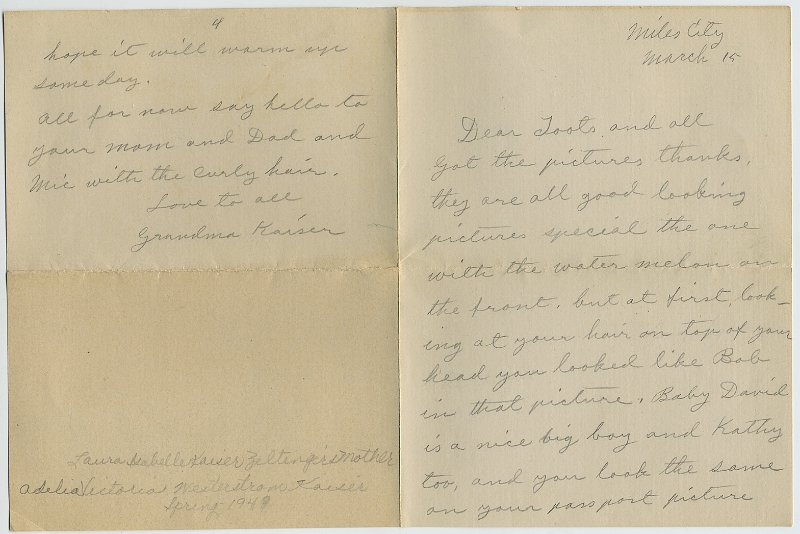 4
hope it will warm up
some day.
All for now say hello to
your mom and Dad and
Mic with the curly hair.
Love to all
Grandma Kaiser
Laura Isabelle Kaiser Zeltinger's Mother
Adelia Victoria Kaiser
Spring 194
Miles City
March 15
Dear Toots and all
Got the pictures thanks,
they are all good looking
pictures special the one
with the water melon on
the front. but at first look-
ing at your hair on top of your
head you looked like Bob
in that picture. Baby David
is a nice big boy and Kathy
too, and you look the same
on your passport picture